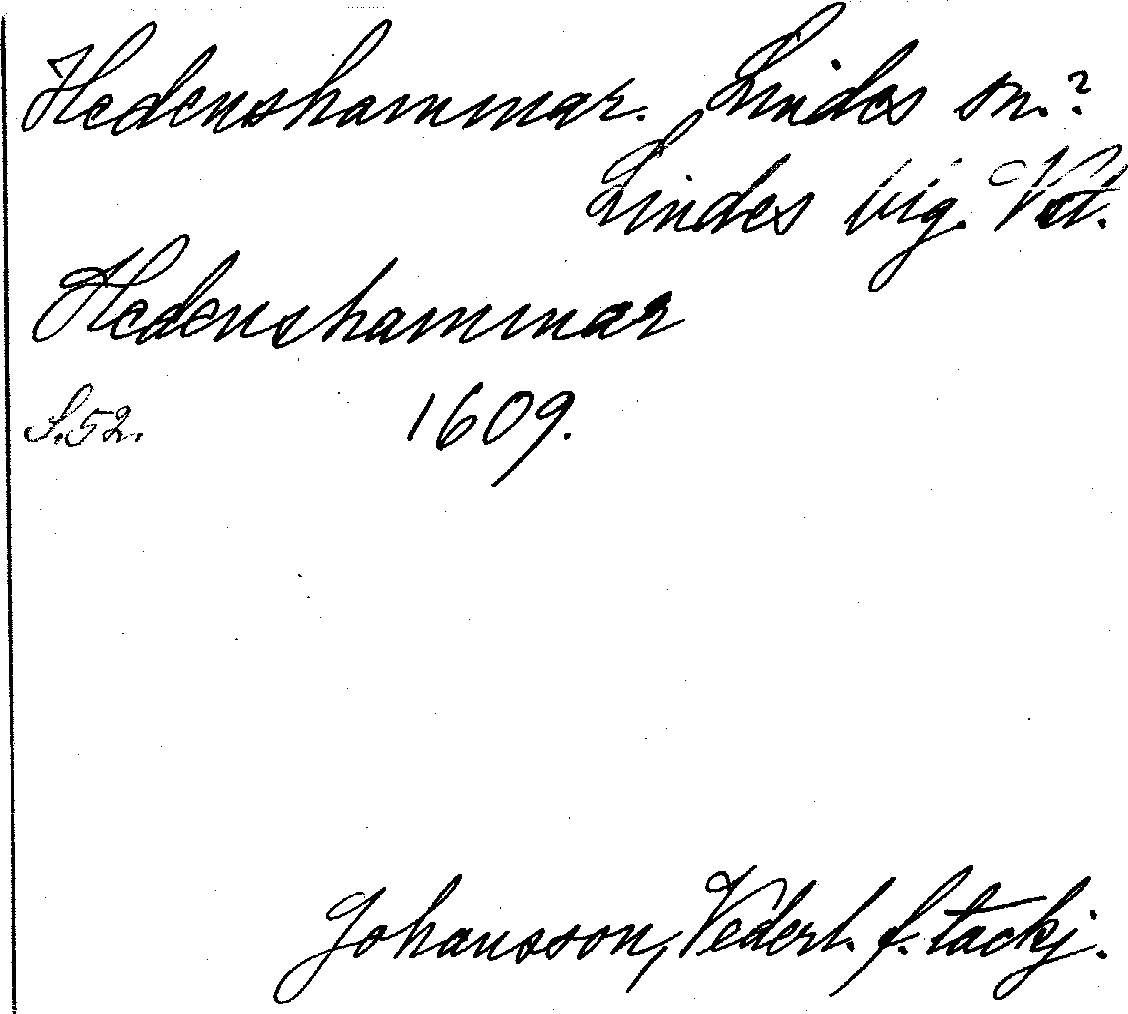 Hedenshammar. Lindes sn.?
Lindes btg. Vst.
Hedenshammar
S.52. 1609.
Johansson, Vederl. f. tackj.